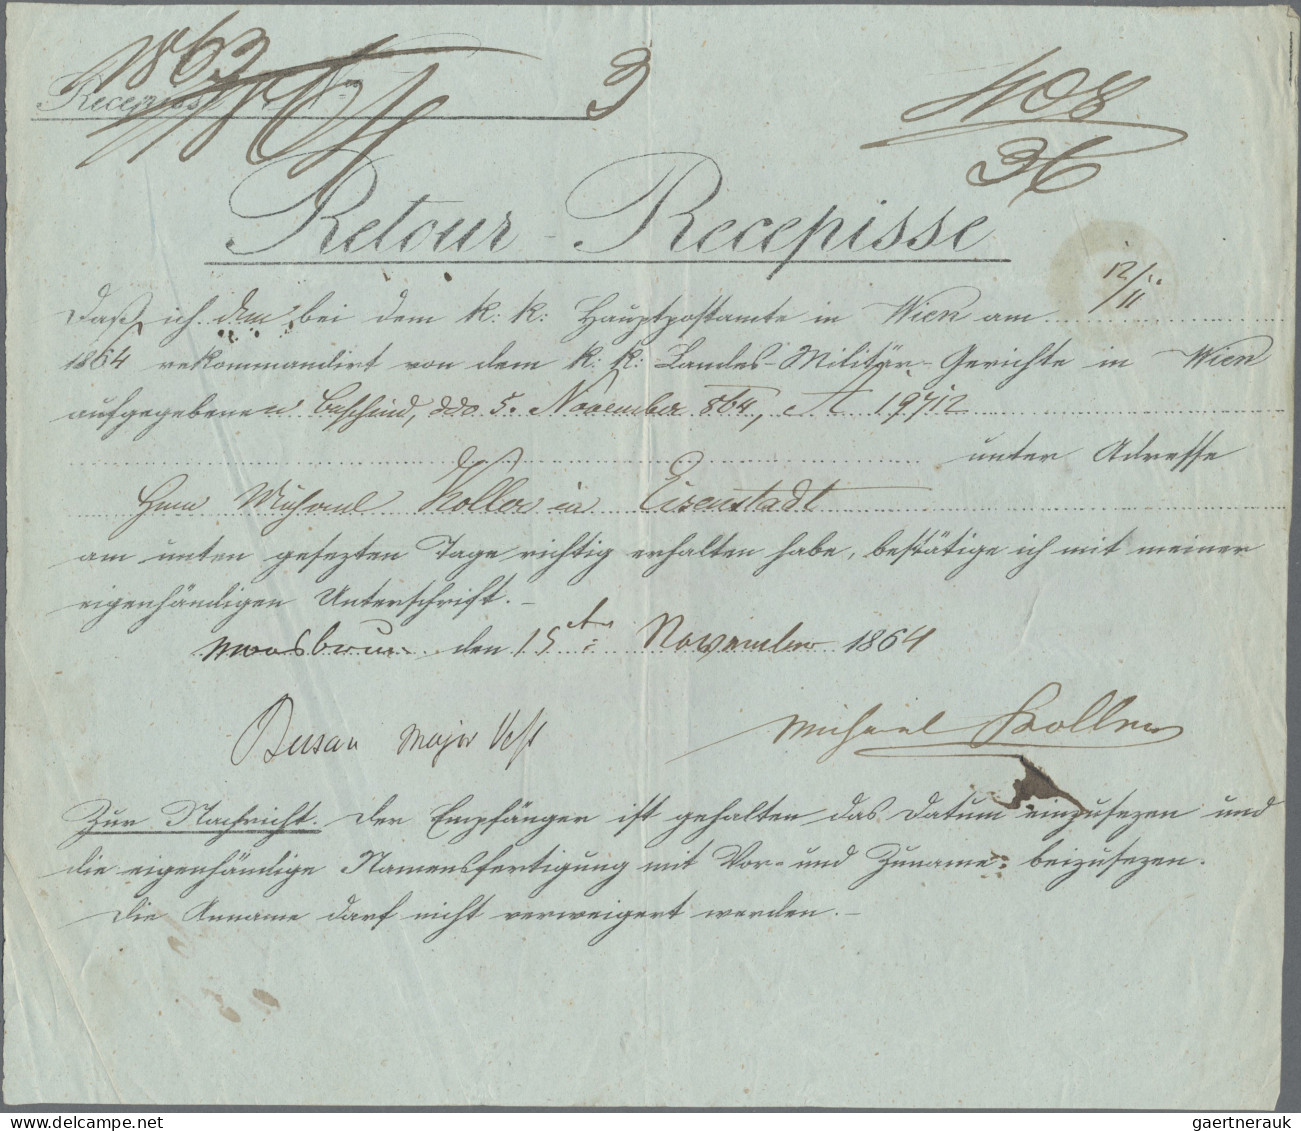 1863
Recepisse Nro 3
408
36
Retour-Recepisse
Daß ich den bei dem k: k: Hauptpostamte in Wien am 12/11
1864 rekommandirt von dem k: k: Landes-Militär-Gerichte in Wien
aufgegebenen Bescheid, ddo 5. November 864, A 19712
unter Adresse
Herrn Michael Koller in Eisenstadt
am unten gesezten Tage richtig erhalten habe, bestätige ich mit meiner
eigenhändigen Unterschrift.-
Moosbrun den 15ten November 1864
Major Michael Koller
Zur Nachricht. Der Empfänger ist gehalten das Datum einzusezen und
die eigenhändige Namensfertigung mit Vor- und Zuname beizusezen.
Die Anname darf nicht verweigert werden.-
gaertnerauk
delcampe.net